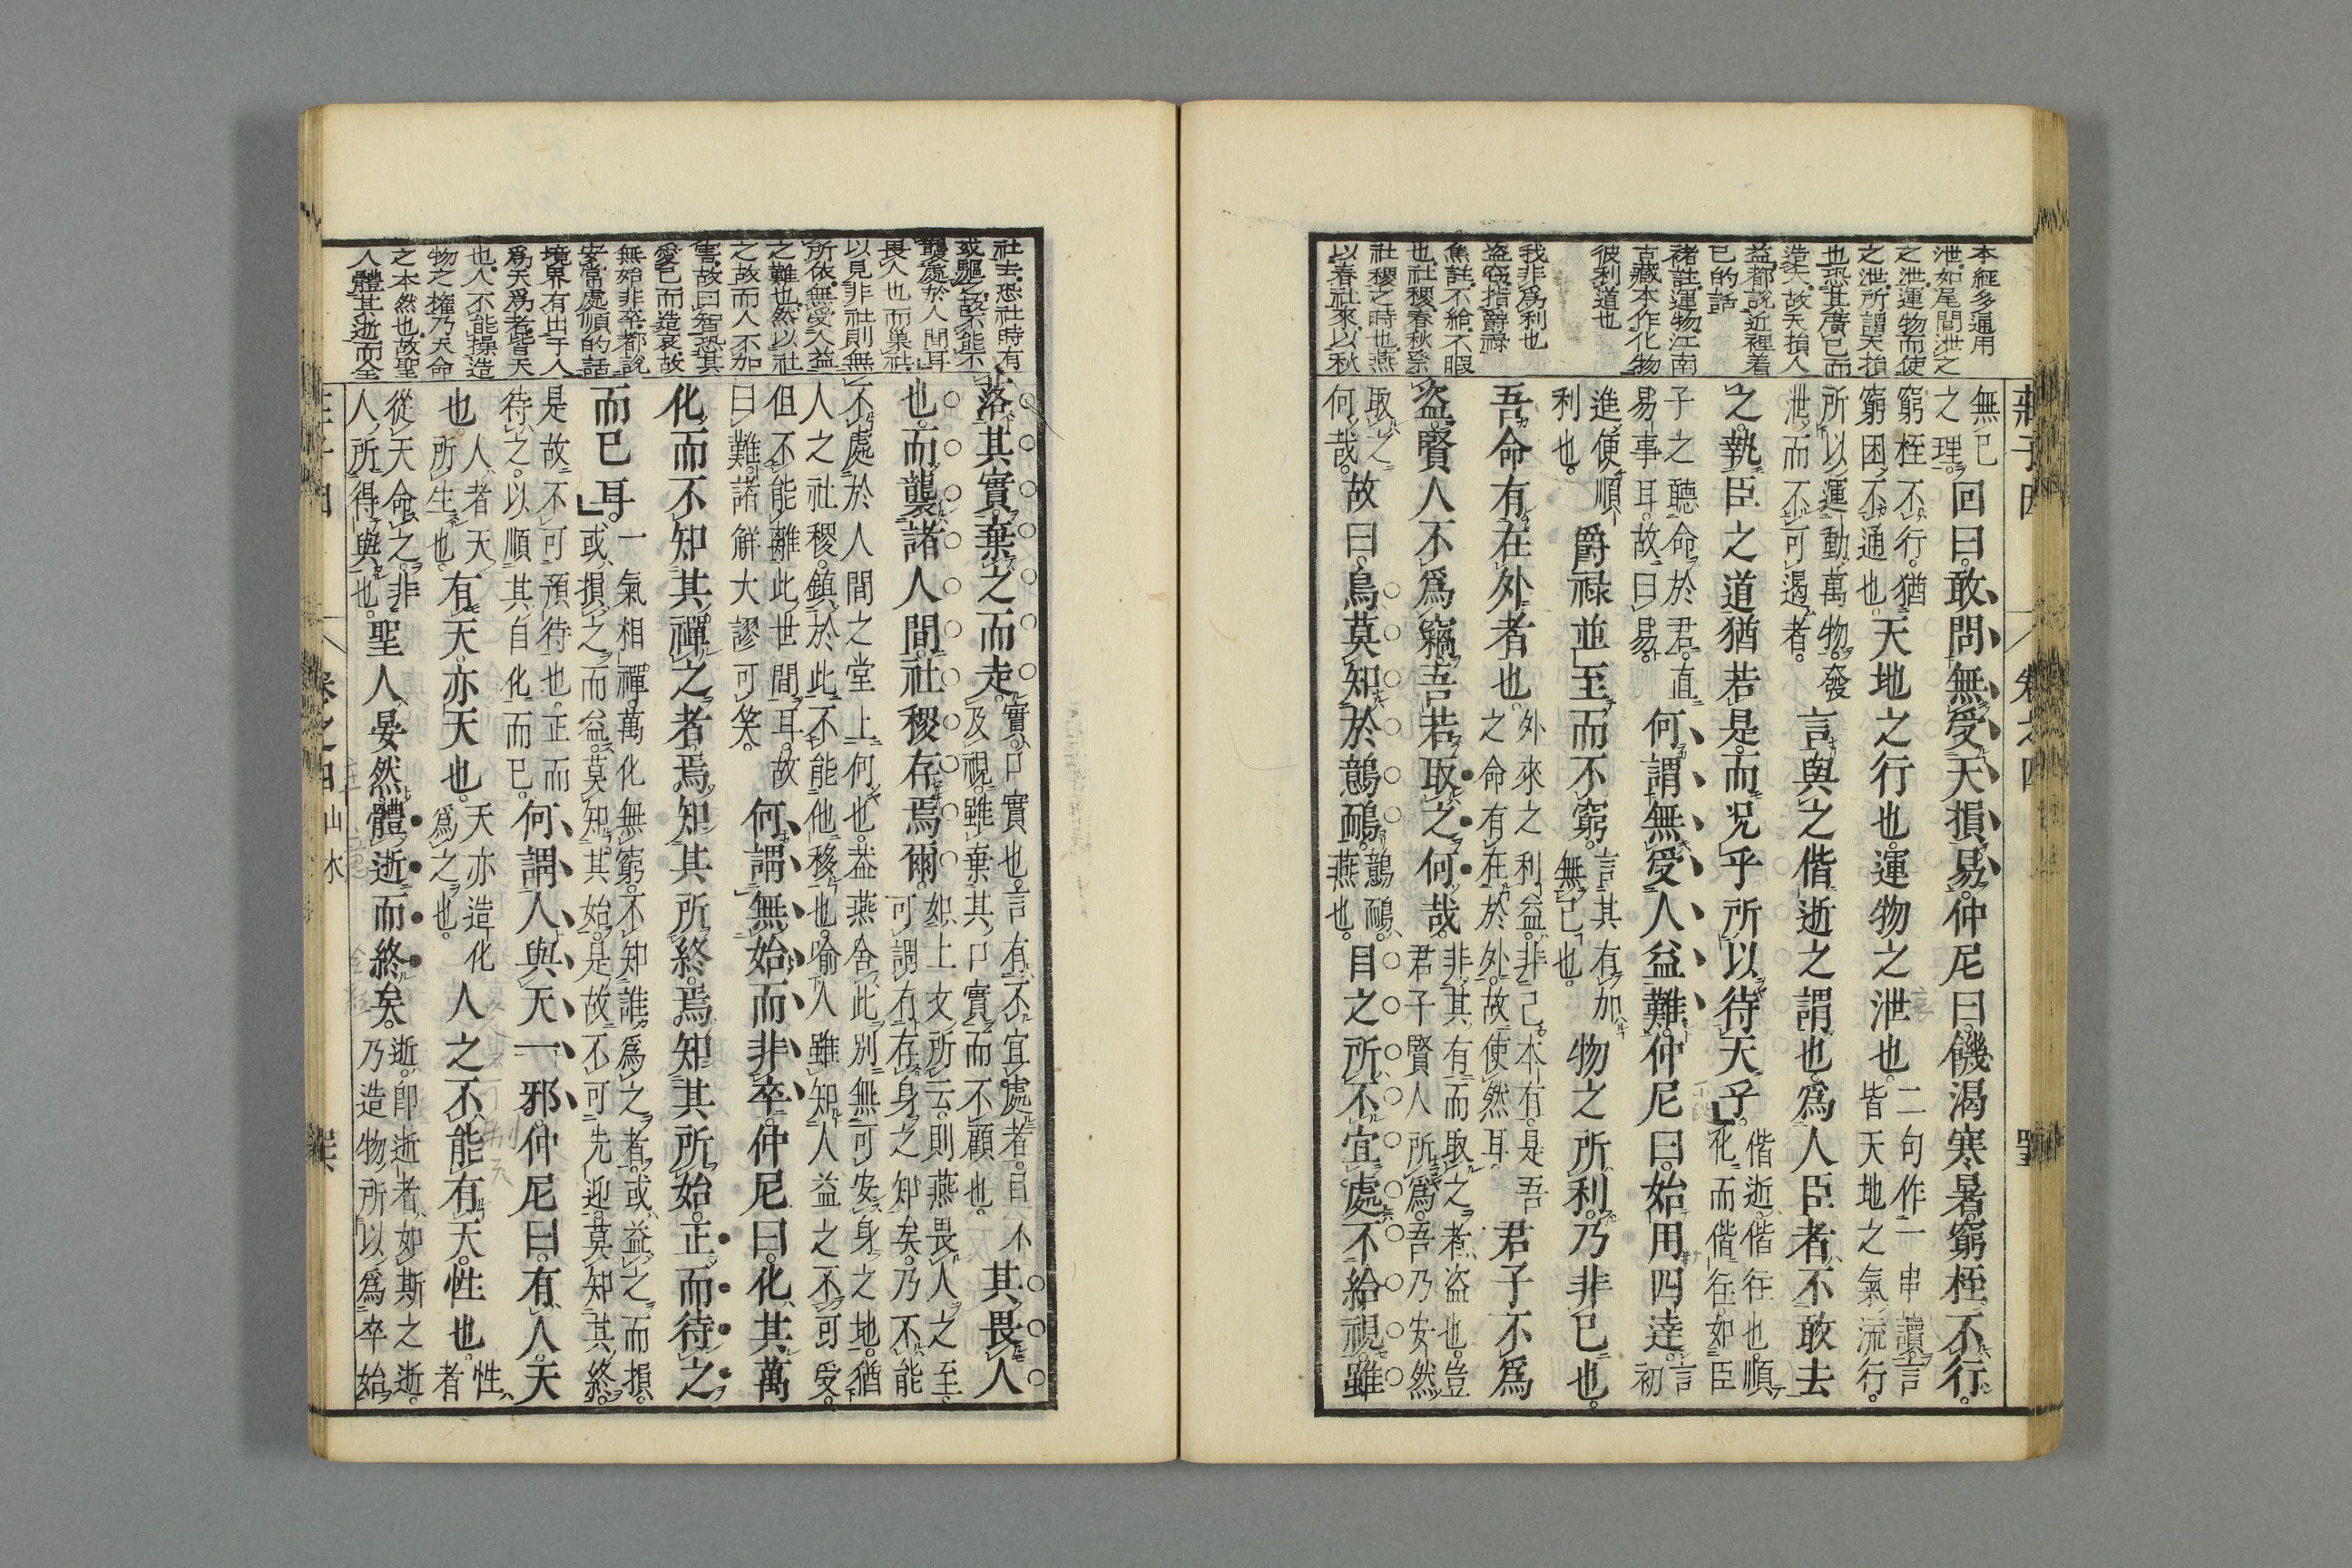 本經多通用
泄如尾閭泄之
之泄運物而使
之泄所謂天損
也恐其廣己而
造大故天損人
益都說近裡着
已的話
褚註運物江南
古藏本作化物
彼利道也
我非爲利也
盜竊指爵祿
焦註不給不暇
也社稷春秋祭
社稷之時也燕
以春社來以秋
無已
之理。回曰。敢問無受天損易。仲尼曰。饑渴寒暑。窮桎不行。
窮桎不行。猶
窮困不通也。天地之行也。運物之泄也。二句作一串讀。言
皆天地之氣流行。
所以運動萬物。發
泄而不可遏者。言與之偕逝之謂也。爲人臣者。不敢去
之。執臣之道猶若是。而况乎所以待天乎。偕逝偕往也。順
化而偕往。如臣
子之聽命於君。直
易事耳。故曰易。何謂無受人益難。仲尼曰。始用四達。言
初
進便順
利也。爵祿並至而不窮。言其有加
無已也。物之所利。乃非己也。
吾命有在外者也。外來之利益。非己本有。是吾
之命有在於外。故使然耳。君子不爲
盜。賢人不爲竊。吾若取之何哉。非其有而取之者。盜也。豈
君子賢人所爲。吾乃安然
取之
何哉。故曰。鳥莫知於鷾鴯。鷾鴯。
燕也。目之所不宜處。不給視。雖
莊子四
卷之四
社去恐社時有
或驅之故不能不
襲處於人間耳
畏人也而巢社
以見非社則無
所依無受人益
之難也然以社
之故而人不加
害故曰智恐其
愛已而造哀故
無始非卒都說
安常處順的話
境界有出于人
爲天爲者皆天
也人不能操造
物之權乃天命
之本然也故聖
人體其逝而全
落其實。棄之而走。實。口實也。言有不宜處者。目不
及視。雖棄其口實而不顧也。其畏人
也。而襲諸人間。社稷存焉爾。如上文所云。則燕畏人之至。
可謂有存身之知矣。乃不能
不處於人間之堂上何也。蓋燕舍此別無可安身之地。猶
人之社稷。鎮於此。不能他移也。喻人雖知人益之不可受。
但不能離此世間耳。故
曰難。諸解大謬可笑。何謂無始而非卒。仲尼曰。化其萬
化而不知其禪之者。焉知其所終。焉知其所始。正而待之
而已耳。一氣相禪。萬化無窮。不知誰爲之者。或益之而損。
或損之而益。莫知其始。是故不可先迎。莫知其終。
是故不可預待也。正而
待之。以順其自化而已。何謂人與天一邪。仲尼曰。有人。天
也。人者天
所生也。有天。亦天也。天亦造化
爲之也。人之不能有天。性也。性
者
從天命之。非
人所得與也。聖人晏然體逝而終矣。逝。卽逝者如斯之逝。
乃造物所以爲卒始
卷之四
山木